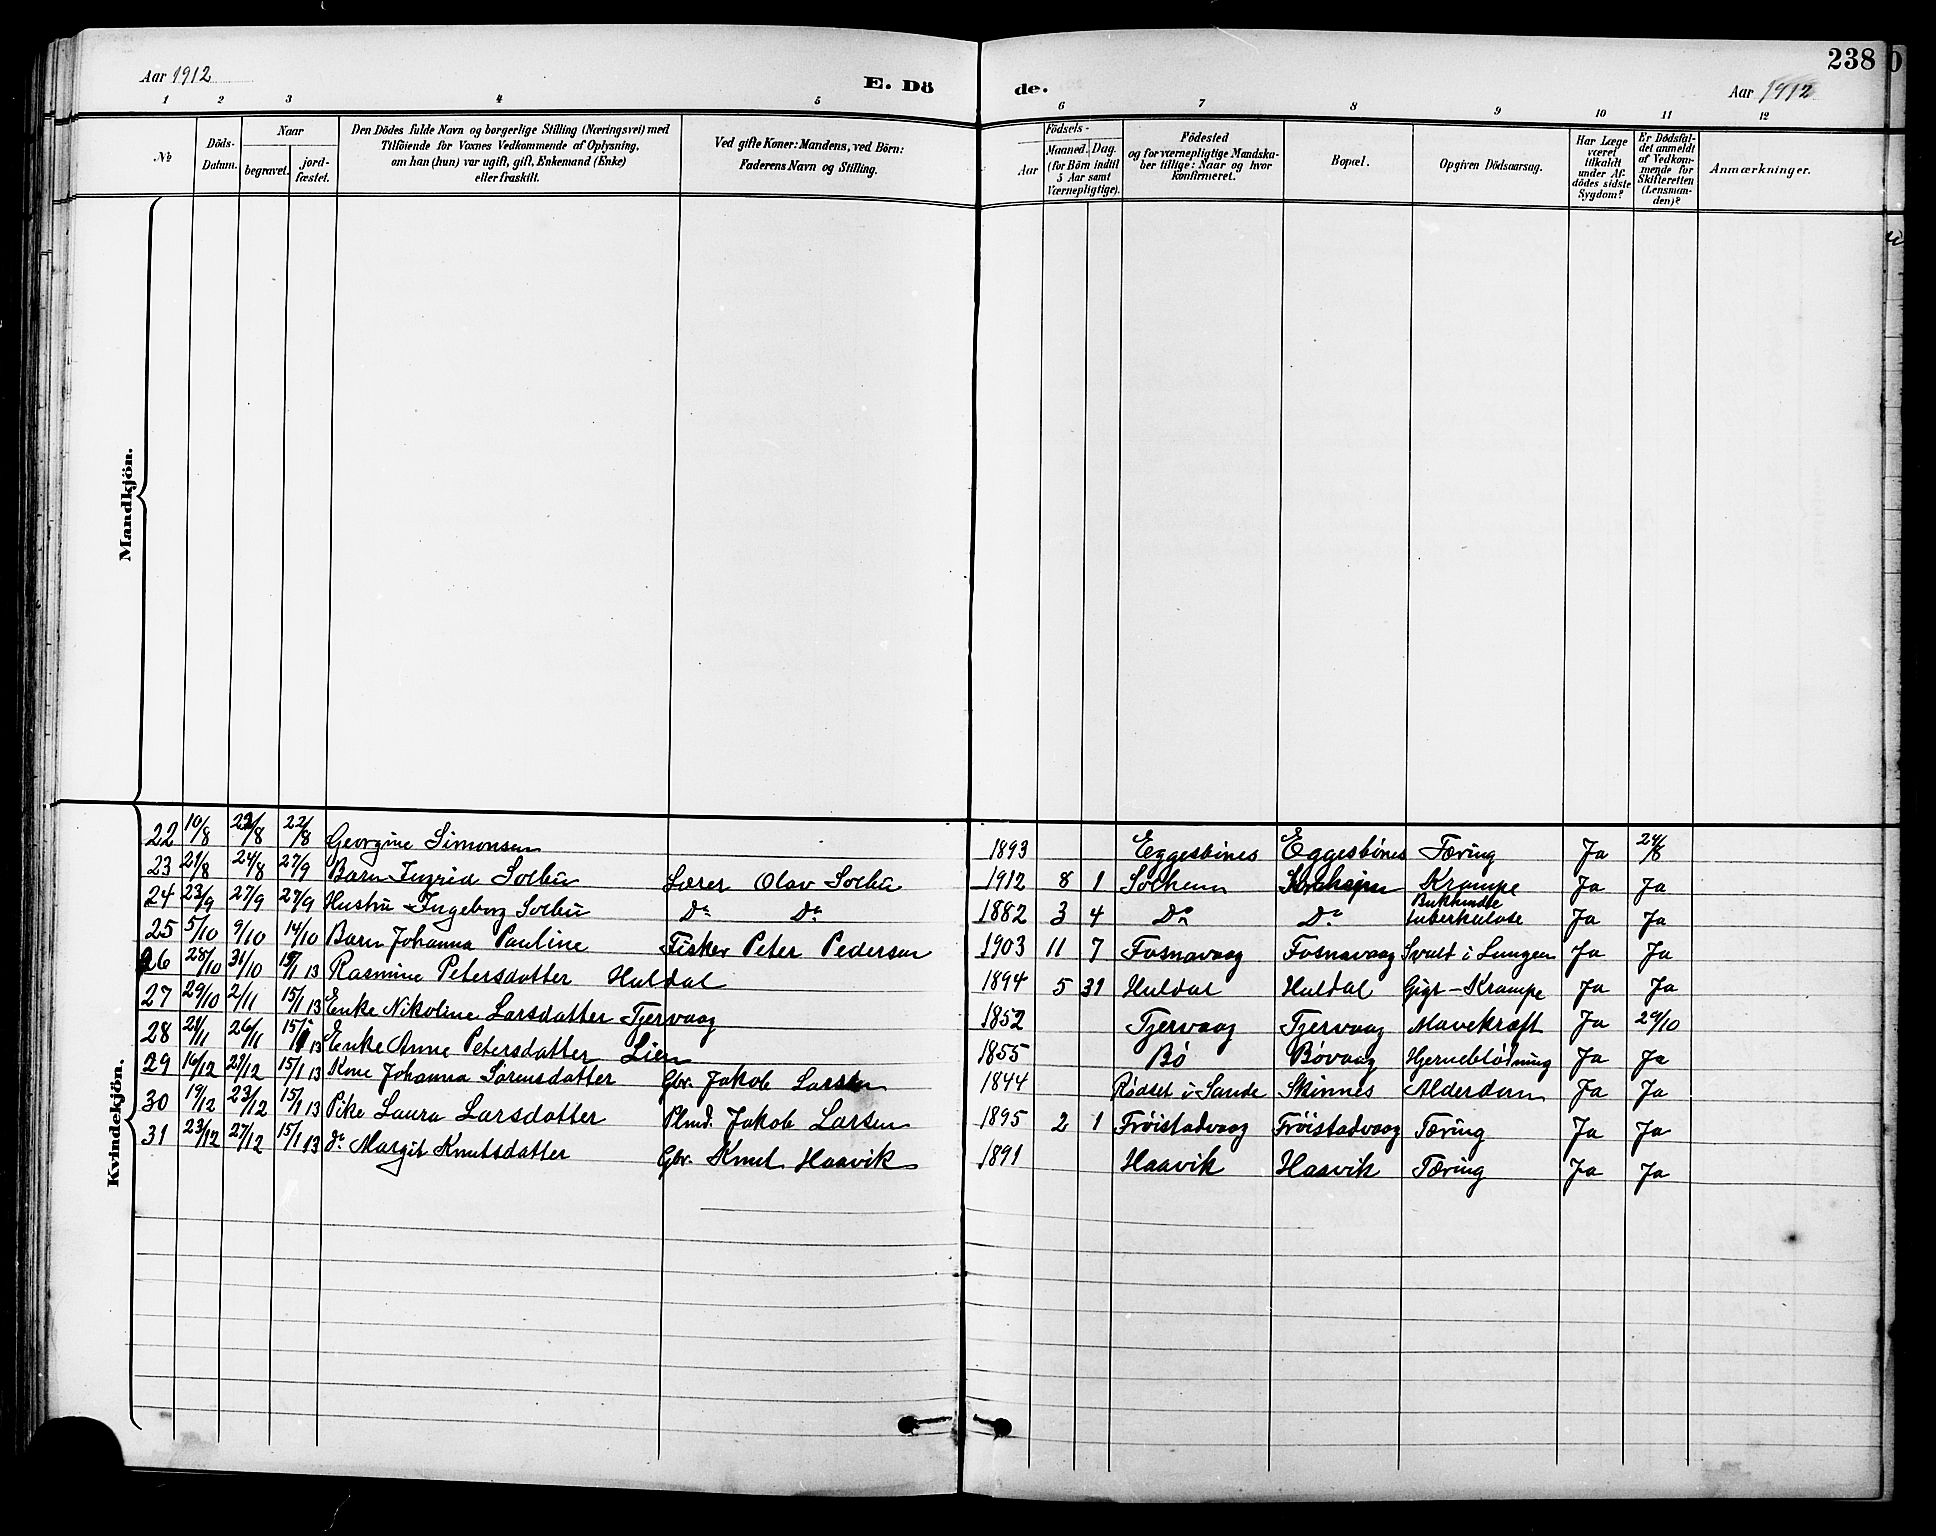 238
Aar 1912 E. Dö de. Aar 1912
1 2 3 4 5 6 7 8 9 10 11 12
№
Döds-Datum.
Naar
begravet.
jord-fæstet.
Den Dödes fulde Navn og borgerlige Stilling (Næringsvei) med
Tilföiende for Voxnes Vedkommende af Oplysning,
om han (hun) var ugift, gift, Enkemand (Enke)
eller fraskilt.
Ved gifte Koner: Mandens, ved Börn:
Faderens Navn og Stilling.
Födsels-
Aar
Maaned. Dag.
(for Börn indtil
5 Aar samt
Værnepligtige).
Födested
og for værnepligtige Mandska-
ber tillige: Naar og hvor
konfirmeret.
Bopæl.
Opgiven Dödsaarsag.
Har Læge
været
tilkaldt
under Af-
dödes sidste
Sygdom?
Er Dödsfal-
det anmeldt
af Vedkom-
mende for
Skifteretten
(Lensman-
den)?
Anmærkninger.
Mandkjön.
Kvindekjön.
22 10/8 22/8 22/8 Georgine Simonsen 1893 Eggesbönes Eggesbönes Tæring Ja 24/8
23 21/8 24/8 27/9 Barn Ingrid Solbu Lærer Olav Solbu 1912 8 1 Solheim Krampe Ja Ja
24 23/9 27/9 27/9 Hustru Ingeborg Solbu Do Do 1882 3 4 Do Do Bukhindetuberkulose Ja Ja
25 5/10 9/10 14/10 Barn Johanna Pauline Fisker Peter Pedersen 1903 11 7 Fosnavaag Fosnavaag Svulst i Lungen Ja Ja
26 28/10 31/10 15/1 13 Rasmine Petersdatter Huldal 1894 5 31 Huldal Huldal Gigt-Krampe Ja Ja
27 29/10 2/11 15/1 13 Enke Nikoline Larsdatter Tjervaag 1852 Tjervaag Tjervaag Mavekræft Ja 29/10
28 21/11 26/11 15/1 13 Enke Anne Petersdatter Lien 1855 Bö Bövaag Hjerneblödning Ja Ja
29 16/12 21/12 15/1 13 Kone Johanna Sørensdatter Gbr. Jakob Larsen 1844 Rödset i Sande Skinnes Alderdom Ja Ja
30 19/12 23/12 15/1 13 Pike Laura Larsdatter Plmd. Jakob Larsen 1895 2 1 Fröistadvaag Fröistadvaag Tæring Ja Ja
31 23/12 27/12 15/1 13 Do Margit Knutsdatter Gbr. Knut Haavik 1891 Haavik Haavik Tæring Ja Ja